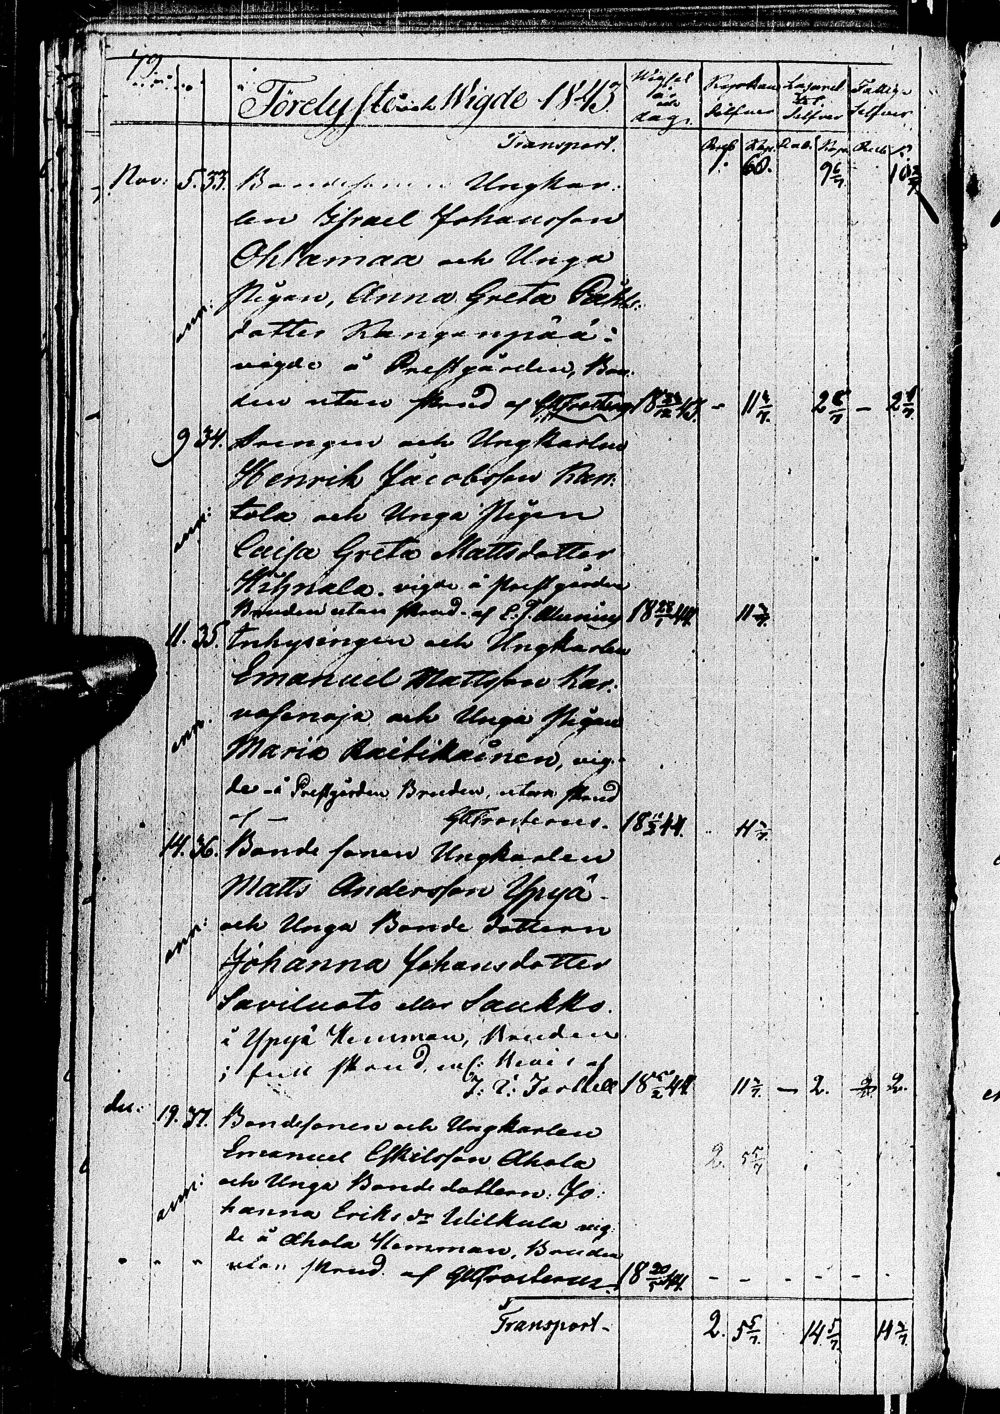 79.
Förelyste och Wigde 1843
Wigsel år och dag.
Kyrkan Silfver
Lazaret Silfver
Fattig- Silfver
Transport. 1. 60. 9 6/7 10 2/7
Nov: 5. 33. Bondesonen Ungkar-
len Israel Johansson
Ohtamaa och Unga
Pigan, Anna Greta
ann: dotter Kangaspää:
vigde å Prestgården, Bru-
den utan skrud af 18 43. - 11 3/7 2 6/7 - 2
9 34. Drengen och Ungkarlen
Henrik Jacobsson Kan-
ann: tola och Unga Pigan
Caisa Greta Mattsdotter
vigde å Prestgården
Bruden utan skrud. af 18 44. 11 3/7
11. 35. Inhysingen och Ungkarlen
Emanuel Mattsson Kar-
ann: vosenoja och Unga Pigan
Maria Raitikainen, vig-
de å Prestgården Bruden, utan skrud
af — GFrosterus. 18 11/2 44. 11 3/7
14. 36. Bonde sonen Ungkarlen
Matts Andersson Ypyä
ann: och Unga Bonde dottern
Johanna Johansdotter
Saviluoto eller Saukko.
å Ypyä Hemman, Bruden
i full skrud, af
18 44. 11 3/7 — 2. 2.
dec: 19. 37. Bondesonen och Ungkarlen
Emanuel Eskilsson Ahola 2. 5 5/7
ann: och Unga Bonde dottern: Jo-
hanna Eriks dr Wilkula vig-
de å Ahola Hemman, Bruden
utan skrud. af GFrosterus. 18 20/5 44. - - - - - -
Transport- 2. 5 5/7 14 5/7 11 3/7